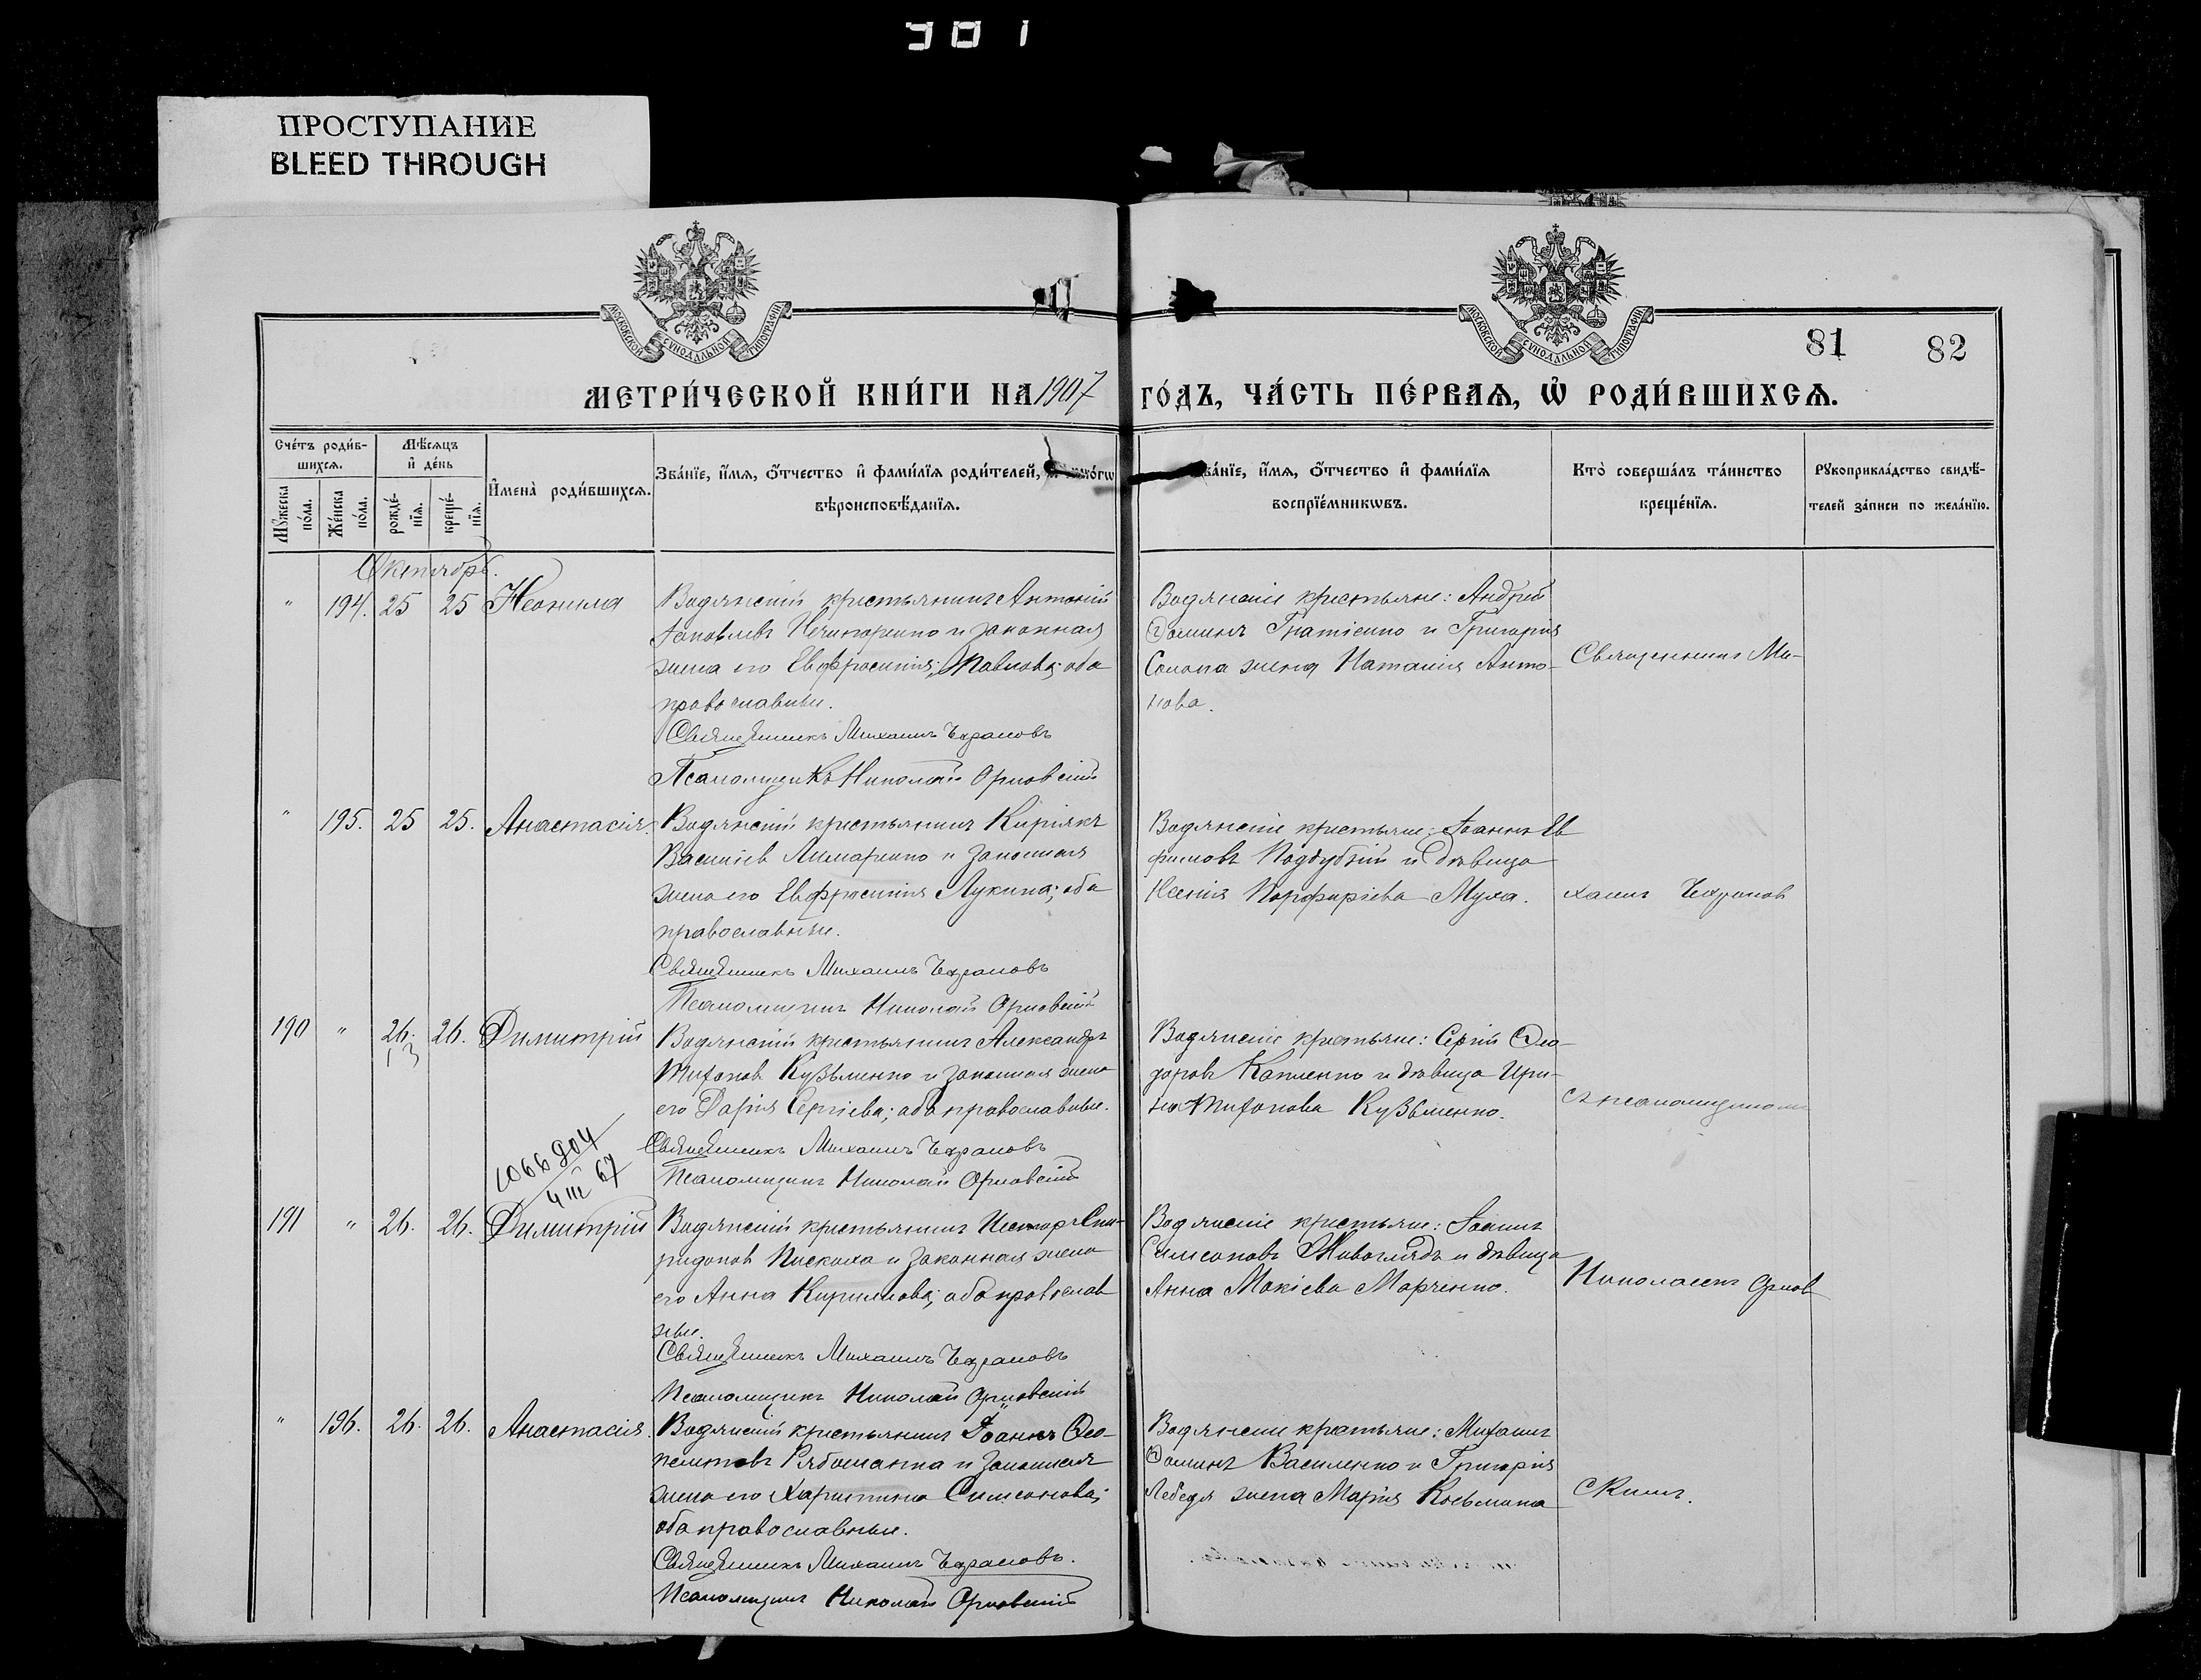 301
ПРОСТУПАНИЕ
BLEED THROUGH
МОСКОВСКОЙ СѴНОДАЛЬНОЙ ТИПОГРАФІИ
МОСКОВСКОЙ СѴНОДАЛЬНОЙ ТИПОГРАФІИ
81 82
МЕТРИ́ЧЕСКОЙ КНИ́ГИ НА 1907 ГО́ДЪ, ЧА́СТЬ ПЕ́РВАѦ, Ѡ҆ РОДИ́ВШИХСѦ.
Сче́тъ роди́в-
шихсѧ.
Мѣ́сѧцъ
и҆ де́нь
Мꙋ́жеска по́ла.
Же́нска по́ла.
рожде́-
нїѧ.
креще́-
нїѧ.
И҆мена̀ роди́вшихсѧ.
Зва́нїе, и҆́мѧ, ѻ҆́тчество и҆ фами́лїѧ роди́телей,
вѣроисповѣ́данїѧ.
Зва́нїе, и҆́мѧ, ѻ҆́тчество и҆ фами́лїѧ
воспрїе́мникѡвъ.
Кто̀ соверша́лъ та́инство
креще́нїѧ.
Рꙋкоприкла́дство свидѣ́-
телей за́писи по жела́нїю.
Октябрь.
" 194. 25 25 Неонила
Водянскій крестьянинъ Антоній
Іаковлевъ Нечипоренко и законная
жена его Евфросинія Павлова; оба
православные.
Священникъ Михаилъ
Псаломщикъ Николай Орловскій
Водянскіе крестьяне: Андрей
Ѳоминъ Гнатенко и Григорія
Солопа жена Наталія Анто-
нова.
Священникъ Ми-
" 195. 25 25. Анастасія.
Водянскій крестьянинъ Киріякъ
Василіевъ Лимаренко и законная
жена его Евфросинія Лукина; оба
православные.
Священникъ Михаилъ
Псаломщикъ Николай Орловскій
Водянскіе крестьяне: Іоаннъ Ев
фимовъ Поддубній и дѣвица
Ксенія Порфиріева Муха.
хаилъ
190 " 26. 26. Димитрій
13
Водянскій крестьянинъ Александръ
Тихоновъ Кузьменко и законная жена
его Дарія Сергіева; оба православные.
Священникъ Михаилъ
Псаломщикъ Николай Орловскій
Водянскіе крестьяне: Сергій Ѳео-
доровъ Капленко и дѣвица Ири-
на Тихонова Кузьменко.
съ псаломщикомъ
1066804
4 III 67
191 " 26. 26. Димитрій
Водянскій крестьянинъ Несторъ Спи-
ридоновъ Пискоха и законная жена
его Анна Кириллова; оба православ
ные.
Священникъ Михаилъ
Псаломщикъ Николай Орловскій
Водянскіе крестьяне: Іоаннъ
Симеоновъ Живоглядъ и дѣвица
Анна Мокіева Марченко.
Николаемъ Орлов
" 196. 26. 26. Анастасія.
Водянскій крестьянинъ Іоаннъ Ѳео-
пемптовъ Рябошапка и законная
жена его Харитина Симеонова;
оба православные.
Священникъ Михаилъ
Псаломщикъ Николай Орловскій
Водянскіе крестьяне: Михаилъ
Ѳоминъ Василенко и Григорія
Лебедя жена Марія Косьмина
скимъ.